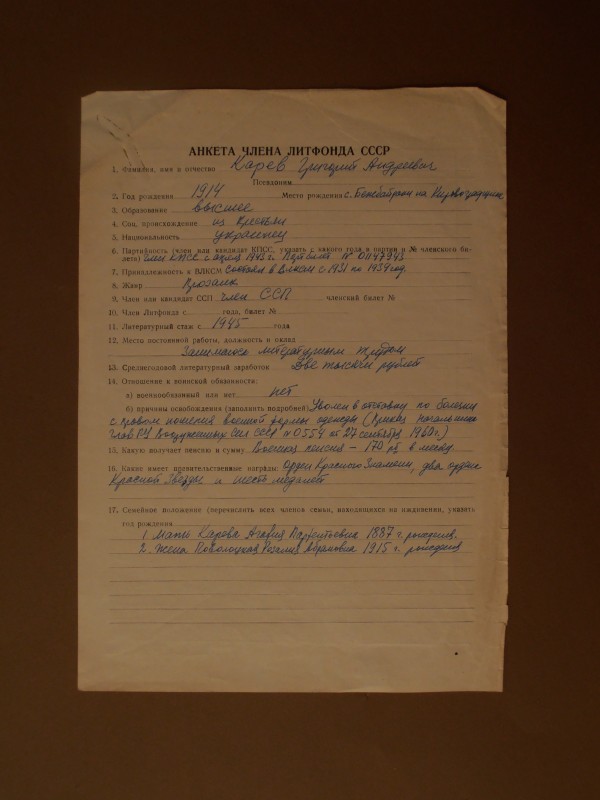 АНКЕТА ЧЛЕНА ЛИТФОНДА СССР
1. Фамилия, имя и отчество Карев Григорий Андреевич
Псевдоним
2. Год рождения 1914 Место рождения с. Бежбайраки Кировоградщин
3. Образование высшее
4. Соц. происхождение из крестьян
5. Национальность украинец
6. Партийность (член или кандидат КПСС, указать с какого года в партии и № членского би-
лета) член КПСС с апреля 1943 г. Партбилет № 01147943
7. Принадлежность к ВЛКСМ Состоял в ВЛКСМ с 1931 по 1939 год.
8. Жанр Прозаик
9. Член или кандидат ССП член ССП членский билет №
10. Член Литфонда с года, билет №
11. Литературный стаж с 1945 года
12. Место постоянной работы, должность и оклад
Занимаюсь литературным трудом
13. Среднегодовой литературный заработок Две тысячи рублей
14. Отношение к воинской обязанности:
а) военнообязанный или нет нет
б) причины освобождения (заполнить подробней) Уволен в отставку по болезни
с правом ношения военной формы одежды (Приказ начальника
Глав РУ Вооруженных Сил СССР № 0554 от 27 сентября 1960 г.)
15. Какую получает пенсию и сумму Военная пенсия — 170 р. в месяц.
16. Какие имеет правительственные награды: Орден Красного Знамени, два ордена
Красной Звезды и шесть медалей
17. Семейное положение (перечислить всех членов семьи, находящихся на иждивении, указать
год рождения
1. Мать Карева Агафия 1887 г. рождения.
2. Жена Поволоцкая Розалия Абрамовна 1915 г. рождения